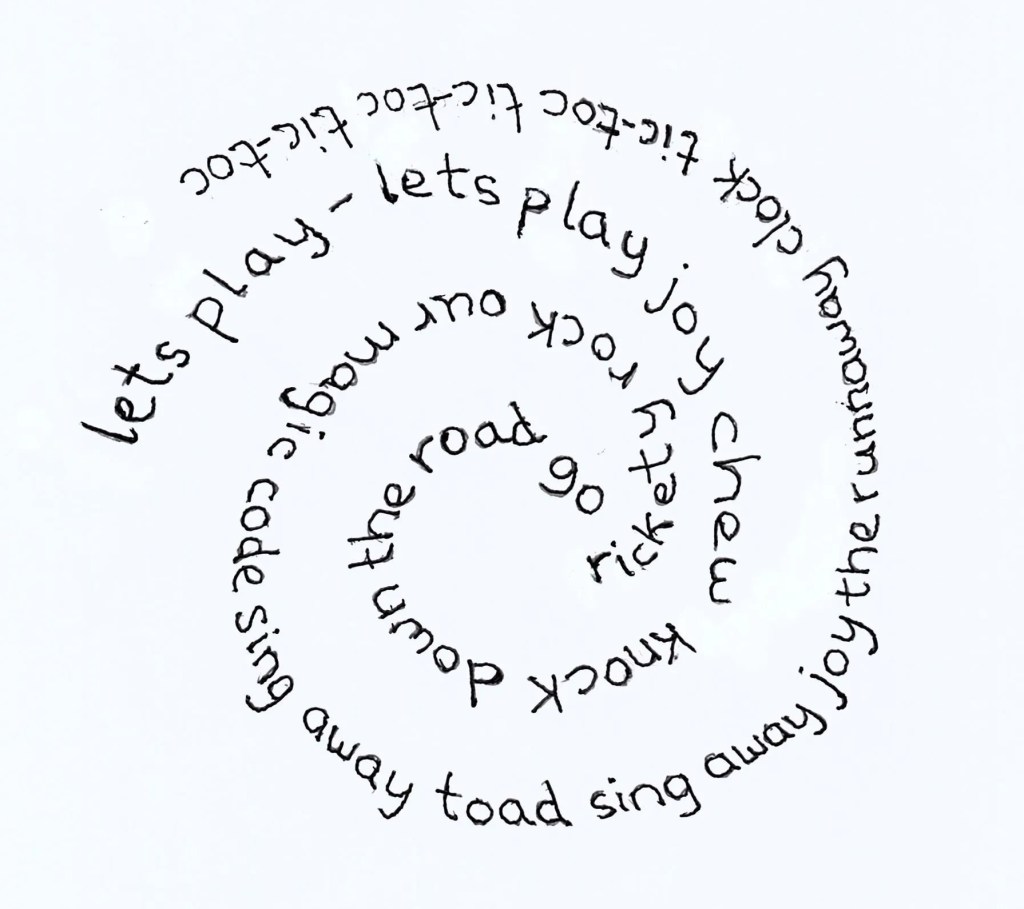 lets play - lets play joy chew knock down the road go
rickety rock our magic code sing away toad sing away joy the runnaway clock tic-toc tic-toc tic-toc